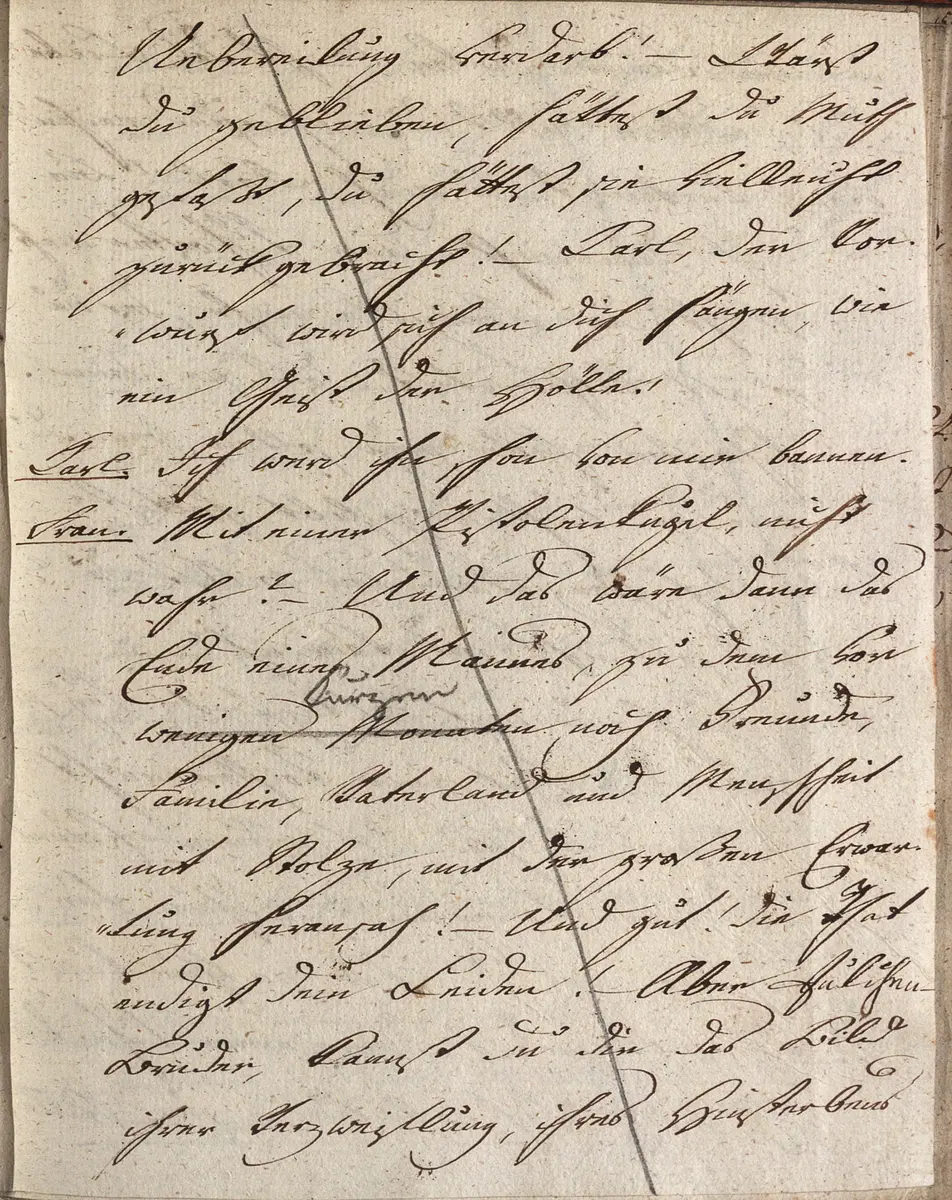 Uebereilung verdarb! – Wärst
du geblieben, hättest du Muth
gefaßt, du hättest sie vielleicht
zurück gebracht! – Carl, der Vor-
-wurf wird sich an dich hängen, wie
ein Geist der Hölle!
Carl. Ich werd ihn schon von mir bannen.
Fran. Mit einer Pistolenkugel, nicht
wahr? – Und das wäre dann das
Ende eines Mannes, zu dem vor
kurzem
wenigen Monaten noch Freunde,
Familie, Vaterland und Menschheit
mit Stolze, mit der großen Erwar-
-tung heransah! – Und gut! die That
endigt dein Leiden! – Aber Julchen –
Bruder, kannst du dir das Bild
ihrer Verzweiflung, ihres Hinsterbens